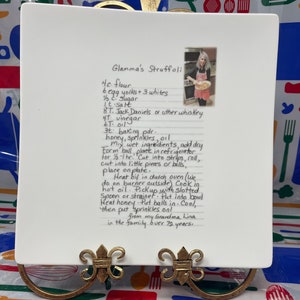 Glamma's Struffoli
4c flour
6 egg yolks + 3 whites
½ c sugar
1t. salt
8T. Jack Daniels or other whiskey
4T. vinegar
6T. oil
3t. baking pdr.
honey, sprinkles, oil
Mix wet ingredients, add dry
Form ball, place in refrigerator
for ½-1hr. Cut into strips, roll,
cut into little pieces or balls,
place on plate.
Heat oil in dutch oven (we
do on burner outside) Cook in
hot oil. Pick up with slotted
spoon or strainer. Put into bowl
Heat honey. Put balls in. Cool,
then put sprinkles on!
From my Grandma Lina
in the family over 75 years!